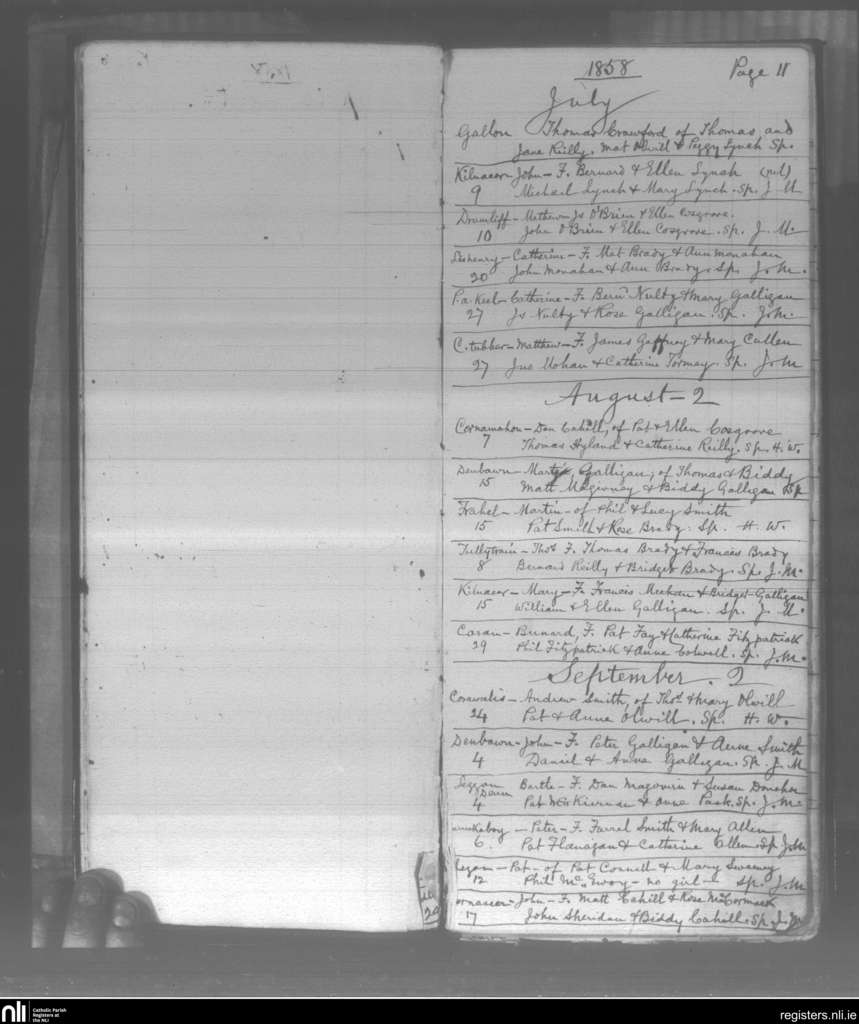 1858 Page 11
July
Gallon Thomas Crawford of Thomas and
Jane Reilly. Mat Olwill & Peggy Lynch Sp.
Kilnacor John - F. Bernard & Ellen Lynch
9 Michael Lynch & Mary Lynch. Sp. J. M
Drumliff - Mathew Js O'Brien & Ellen Cosgrove.
10 John O'Brien & Ellen Cosgrove. Sp. J. M.
Catherine - F. Mat Brady & Ann Monahan
20 John Monahan & Ann Brady. Sp. J. M.
Catherine - F. Bern Nulty & Mary Galligan
27 Js Nulty & Rose Galligan. Sp. J. M.
C. tubber - Matthew - F. James Gaffney & Mary Cullen
27 Jno Mohan & Catherine Tormey. Sp. J. M
August - 2
Cornamahon - Dan Cahill, of Pat & Ellen Cosgrove
7 Thomas Hyland & Catherine Reilly. Sp. H. W.
Denbawn - Galligan, of Thomas & Biddy
15 Matt & Biddy Galligan Sp
Martin - of Phil & Lucy Smith
15 Pat Smith & Rose Brady. Sp. H. W.
Tullytrain - Thos F. Thomas Brady & Frances Brady
8 Bernard Reilly & Bridget Brady. Sp. J. M.
Kilnacor - Mary - F. Francis Meehan & Bridget Galligan
15 William & Ellen Galligan. Sp. J. M.
Caran - Bernard, F. Pat Fay & Catherine Fitzpatrick
29 Phil Fitzpatrick & Anne Colwell. Sp. J. M.
September. 2
Andrew Smith, of Thos. & Mary Olwill
24 Pat & Anne Olwill. Sp. H. W.
Denbawn - John - F. Peter Galligan & Anne Smith
4 Daniel & Anne Galligan. Sp. J. M
Bartle - F. Dan Magovirn & Susan Donohoe
4 Pat McKiernan & Anne Sp. J. M.
Peter - F. Farrel Smith & Mary Allen
6. Pat Flanagan & Catherine Allen. Sp. J. M
Pat - of Pat Connell & Mary Sweeney
12 Phil McEvoy - no girl - Sp. J. M
John - F. Matt Cahill & Rose McCormack
17 John Sheridan & Biddy Cahill. Sp. J. M.
nli Catholic Parish
Registers at
the NLI
registers.nli.ie